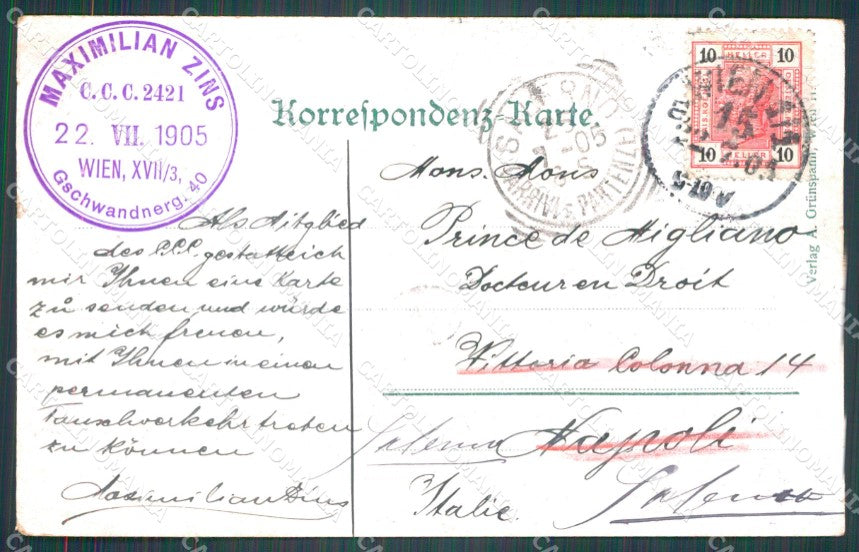 MAXIMILIAN ZINS
C.C.C. 2421
22. VII. 1905
WIEN, XVII/3,
Gschwandnerg. 40
Korrespondenz-Karte.
10 HELLER 10
10 HELLER 10
WIEN
SALERNO
-05
(ARRIVI E PARTENZE)
Als Mitglied
des C.C.C. gestatte ich
mir Ihnen eine Karte
zu senden und würde
es mich freuen,
mit Ihnen in einen
permanenten
Tauschverkehr treten
zu können
Maximilian Zins
Mons. Mons.
Prince de Migliano
Docteur en Droit
Vittoria Colonna 14
Salerno Napoli
Salerno
Italie.
Verlag A. Grünspann, Wien
CARTOLINOMANIA